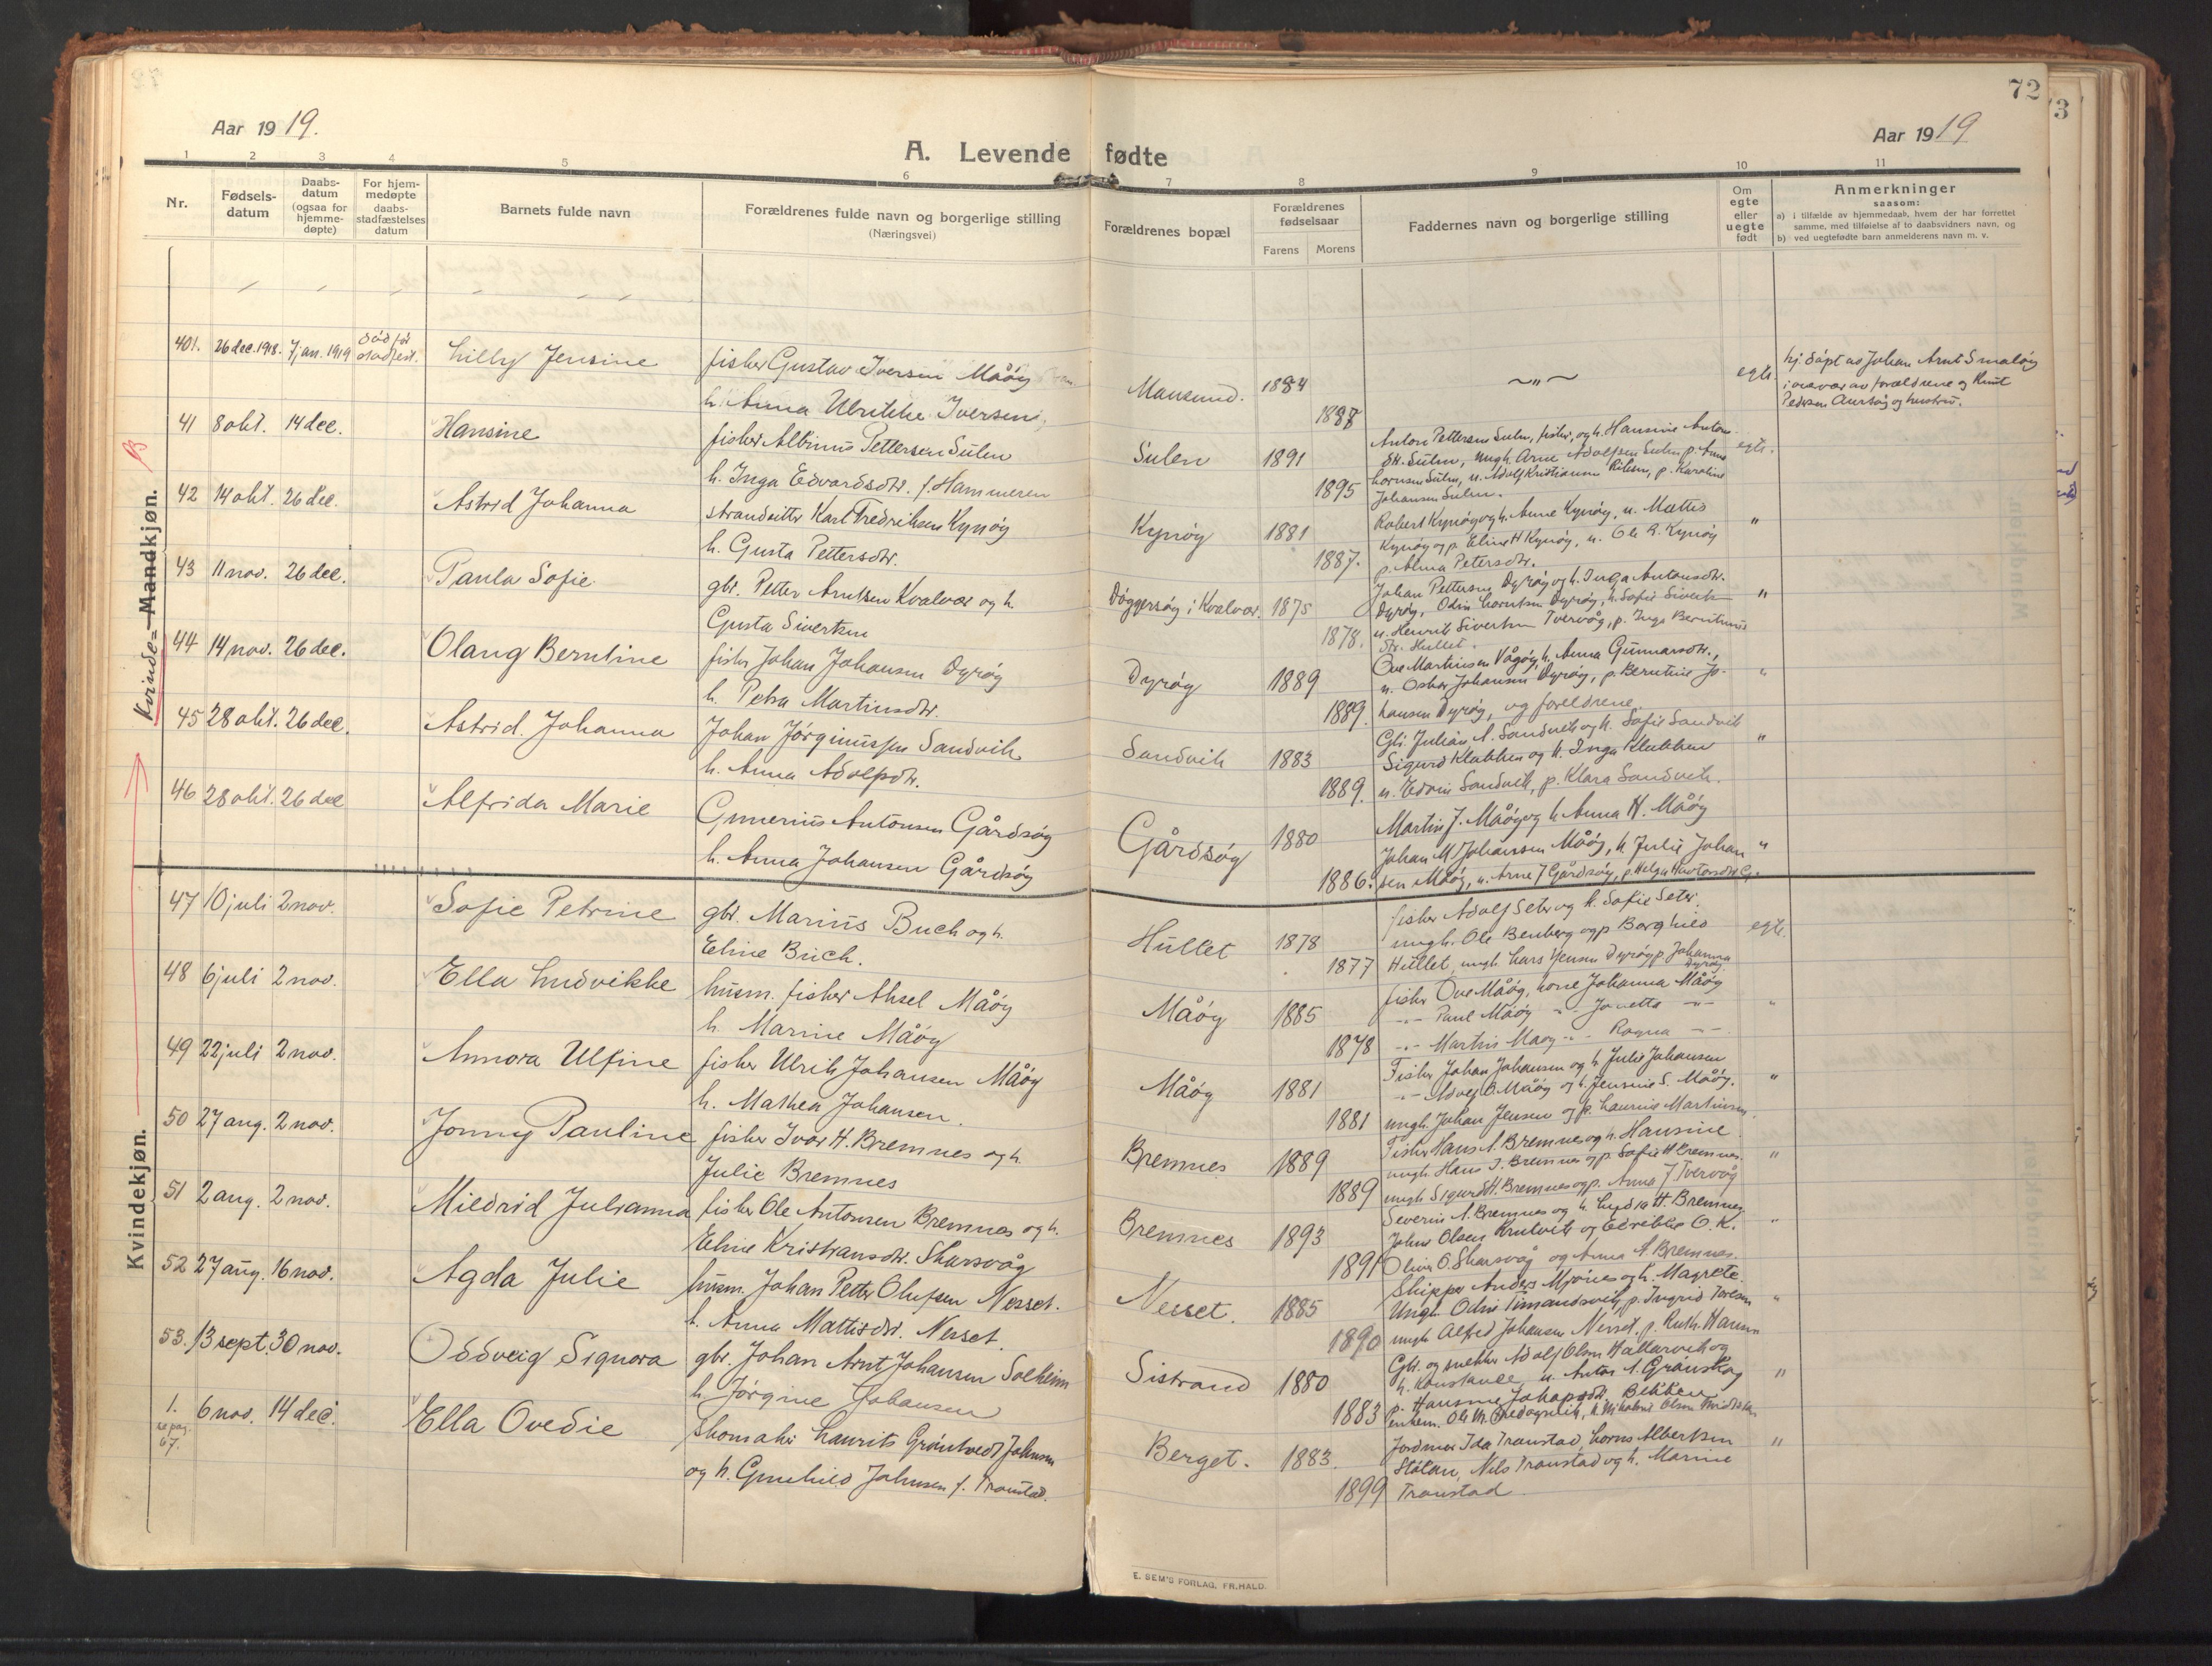 72
Aar 1919.
Aar 1919
A. Levende fødte
1 2 3 4 5 6 7 8 9 10 11
Nr.
Fødsels-
datum
Daabs-
datum
(ogsaa for
hjemme-
døpte)
For hjem-
medøpte
daabs-
stadfæstelses
datum
Barnets fulde navn
Forældrenes fulde navn og borgerlige stilling
(Næringsvei)
Forældrenes bopæl
Forældrenes
fødselsaar
Farens Morens
Faddernes navn og borgerlige stilling
Om
egte
eller
uegte
født
Anmerkninger
saasom:
a) i tilfælde av hjemmedaab, hvem der har forrettet
samme, med tilføielse af to daabsvidners navn, og
b) ved uegtefødte barn anmelderens navn m. v.
Kvinde= Mandkjøn.
Kvindekjøn.
401. 26 dec. 1918. 7 jan. 1919 død før stadfest. Lilly Jensine fisker Gustav Iversen Måøy Mausund. 1884 egte. hj. døpt av Johan Arnt Smaløy
h. Anna Ulrikke Iversen 1887 i nærvær av forældrene og Knut
Pedersen Aursøy og hustru.
41 8 okt. 14 dec. Hansine fisker Albinus Pettersen Sulen Sulen 1891 Anton Pettersen Sulen, fisker, og h. Hansine Anton egte.
h. Inga Edvardsdtr. f. Hammeren 1895 dtr. Sulen, ungk. Arne Adolfsen Sulen p. Anna
Johansen Sulen.
42 14 okt. 26 dec. Astrid Johanna strandsitter Karl Fredriksen Kynøy Kynøy 1881 Robert Kynøy og h. Anne Kynøy, u. Mattis "
h. Gusta Pettersdtr. 1887. Kynøy og p. Eline H Kynøy, u. Ole R. Kynøy
p. Anna Petersdtr.
43 11 nov. 26 dec. Paula Sofie gbr. Petter Arntsen Kvalvær og h. Døggersøy i Kvalvær. 1875 Johan Pettersen Dyrøy og h. Inga Antonsdtr. "
Gusta Sivertsen 1878. Dyrøy, Odin Dyrøy, h. Sofie
u. Henrik Sivertsen Tvervåg, p. Inga
dtr. Hullet.
44 14 nov. 26 dec. Olaug Berntine fisker Johan Johansen Dyrøy Dyrøy 1889 Ove Martinsen Vågøy, h. Anna Gunnarsdtr., "
h. Petra Martinsdtr. 1889. u. Oskar Johansen Dyrøy, p. Berntine Jo-
hansen Dyrøy, og forældrene.
45 28 okt. 26 dec. Astrid. Johanna Johan Jørginussen Sandvik Sandvik 1883 Gbr. Julian A. Sandvik og h. Sofie Sandvik "
h. Anna Adolfsdtr. 1889. Sigurd Klakken og h. Inga Klakken
u. Edvin Sandvik, p. Klara Sandvik.
46 28 okt. 26 dec Alfrida Marie Gunerius Antonsen Gårdsøy Gårdsøy 1880 Martin J. Måøy og h. Anna H. Måøy "
h. Anna Johansen Gårdsøy 1886. Johan M Johansen Måøy, h Julie Johan
sen Måøy, u. Arne J Gårdsøy,
47 10 juli 2 nov. Sofie Petrine gbr. Marius Buch og h. Hullet 1878 fisker Adolf Seter og h. Sofie Seter. egte.
Eline Buch. 1877 ungk. Ole Benberg og p Borghild
Hullet, ungk. Lars Jensen Dyrøy p. Johanna
Dyrøy
48 6 juli 2 nov. Ella Ludvikke husm. fisker Aksel Måøy Måøy 1885 fisker Ove Måøy, kone Johanna Måøy "
h. Marine Måøy 1878 -"- Paul Måøy -"- Janetta -"-
-"- Martin Maøy -"- Ragna -"-
49 22 juli 2 nov. Annora Ulfine fisker Ulrik Johansen Måøy Måøy 1881 Fisker Johan Johansen og h. Julie Johansen "
h. Mathea Johansen. 1881 -"- O. Måøy og h. Jensine S. Måøy.
ungk. Johan Jensen og p. Laurine Martinsen.
50 27 aug. 2 nov. Jonny Pauline fisker Ivar H. Bremnes og h. Bremnes 1889 Fisker Hans A. Bremnes og h. Hansine "
Julie Bremnes 1889 ungk. Hans J. Bremnes og p. Sofie H Bremnes.
ungk Sigurd H. Bremnes og p. Anna J Tvervåg
51 2 aug. 2 nov. Mildrid Julianna fisker Ole Antonsen Bremnes og h. Bremnes 1893 Severin A. Bremnes og h. Lydia H. Bremnes "
Eline Kristiansdtr. Skarsvåg 1891 Johan Olsen og O. K.
Oliver O. Skarsvåg og Anna A. Bremnes.
52 27 aug. 16 nov. Agda Julie husm. Johan Petter Olufsen Nesset. Nesset. 1885 Skipper Anders Mjønes og h. Magrete. "
h. Anna Mattisdtr. Nesset. 1890 Ungk. Odin p. Ingrid
ungk Alfred Johansen Nesset, p. Ruth. Hansen
53. 13 sept. 30 nov. Oddveig Signora gbr. Johan Arnt Johansen Solheim Sistrand 1880 Gbr. og snekker Adolf Olsen Hallarvik og "
h. Jørgine Johansen 1883 h. Konstanse, u. Anton A. Grønskag
p. Hansine Bekken
1. se pag. 67. 6 nov. 14 dec. Ella Ovedie Skomaker Laurits Grøntvedt Johnsen Berget. 1883. Jordmor Ida Transtad, Albertsen "
og h. Gunhild Johnsen f. Transtad. 1899 Stølan, Nils Transtad og h. Marine
Transtad
E. SEM'S FORLAG, FR.HALD.